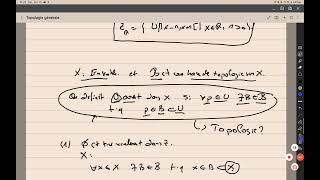 Topologie générale
= { U]x-r,x+r[ | x∈ℝ, r>0 }
X: Ensemble et B est une base de topologie sur X.
On définit U ouvert dans X si ∀p∈U ∃B∈B
t.q p∈B⊂U
→ Topologie?
(1) ∅ est
X:
∀x∈X ∃B∈B t.q x∈B⊂X